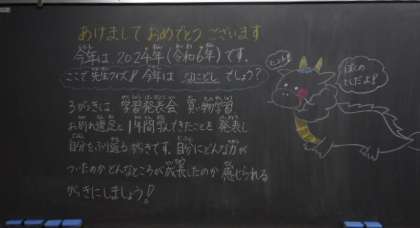 あけまして おめでとう ございます
今年は 2024年(令和6年)です。
ここで 先生クイズ! 今年は なにどし でしょう?
ヒント!
ぼくの としだよ!
3がっきは、学習発表会 買い物学習
お別れ遠足と 1年間 してきたことを 発表し
自分をふり返る がっきです。自分に どんな力が
ついたのか どんなところが 成長したのか 感じられる
がっきにしましょう!